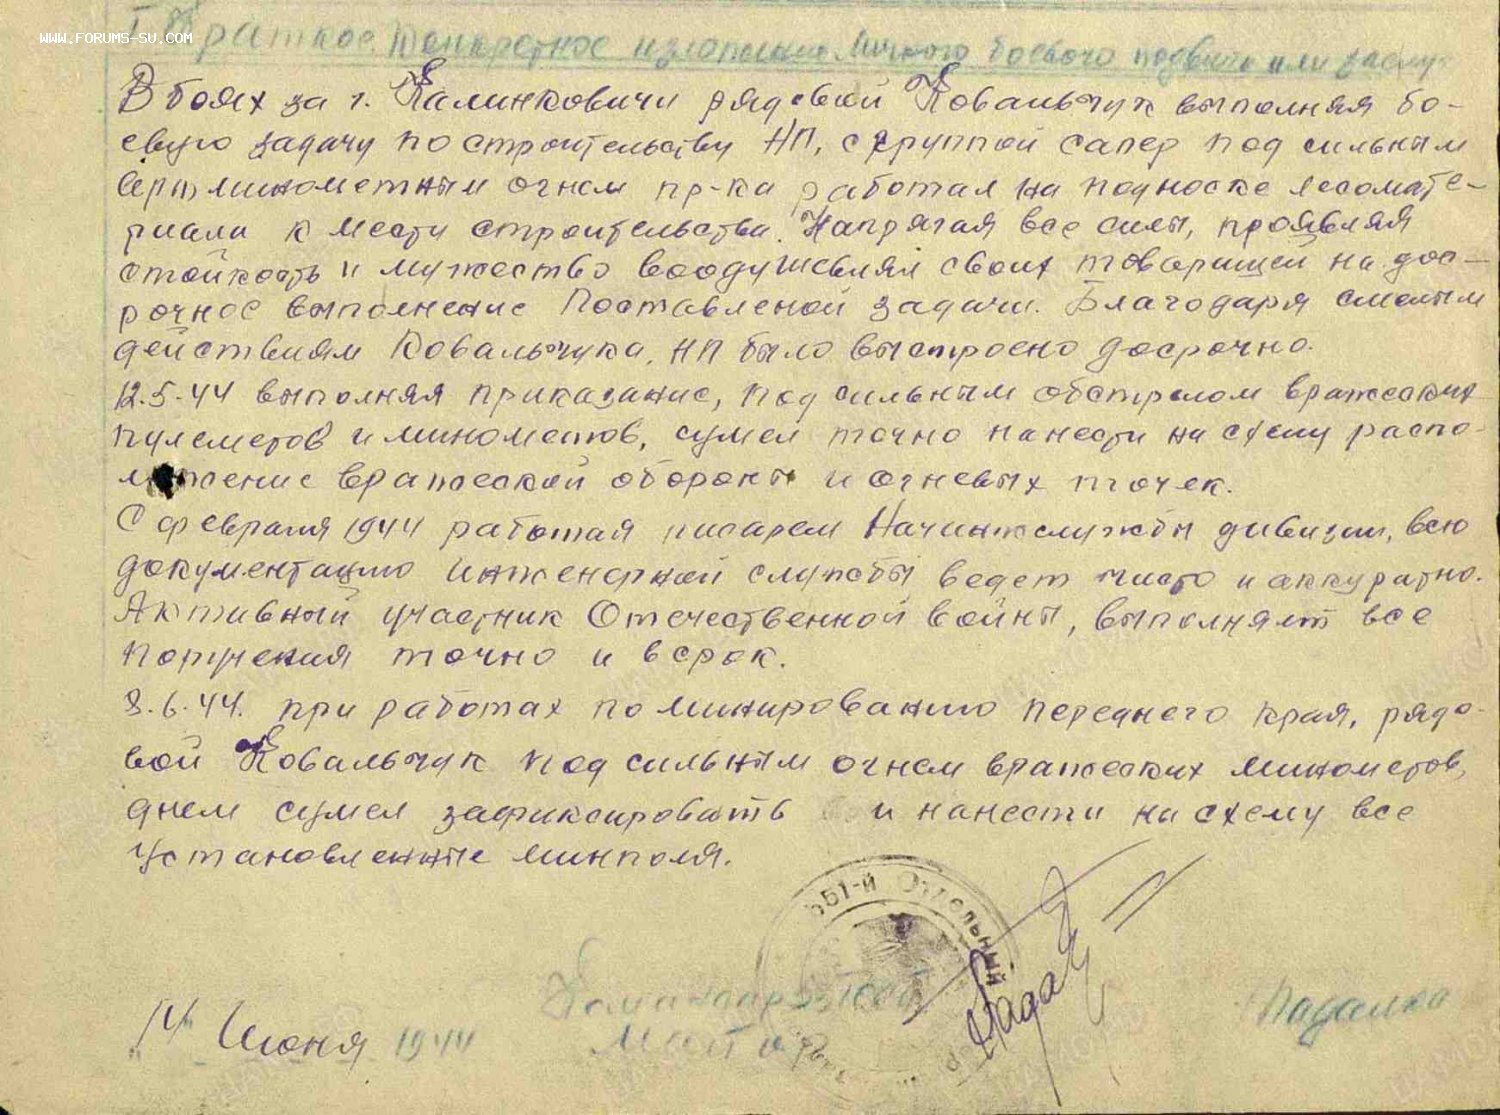 WWW.FORUMS-SU.COM
I Краткое конкретное изложение личного боевого подвига или заслуг
В боях за г. Калинковичи рядовой Ковальчук выполняя бо-
евую задачу по строительству НП, с группой сапер под сильным
артминометным огнем пр-ка работал на подноске лесомате-
риала к месту строительства. Напрягая все силы, проявляя
стойкость и мужество воодушевлял своих товарищей на дос-
рочное выполнение поставленой задачи. Благодаря смелым
действиям Ковальчука, НП было выстроено досрочно.
12.5.44 выполняя приказание, под сильным обстрелом вражеских
пулеметов и минометов, сумел точно нанести на схему распо-
ложение вражеской обороны и огневых точек.
С февраля 1944 работая писарем Начинжслужбы дивизии, всю
документацию инженерной службы ведет чисто и аккуратно.
Активный участник Отечественной войны, выполняет все
поручения точно и в срок.
8.6.44. при работах по минированию переднего края, рядо-
вой Ковальчук под сильным огнем вражеских минометов,
днем сумел зафиксировать и нанести на схему все
установленные минполя.
551-й Отдельный
Командир
Майор
Падалка
14 Июня 1944